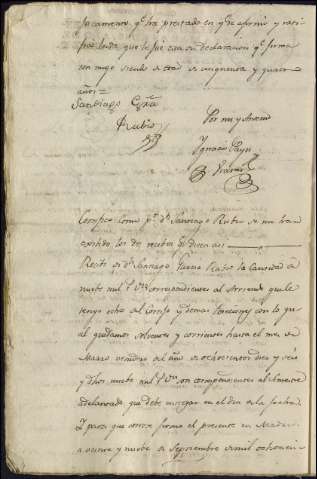 juramento q.e ha prestado en q.e se afirmó y rati-
ficó leida que le fue esta su declaracion q.e firma
con migo siendo de edad de cinquenta y quatro
años =
Santiago
Rubio
Por mi y Ante mi
Ignacio
Certifico Como p.r d.n Santiago Rubio se me han
exivido los dos recibos q.e dicen asi
Recivi de d.n Santiago Garcia Rubio la Cantidad de
nueve mil r.s v.n correspondientes al Arriendo que le
tengo echo del y demas con lo que
al quedamos solventes y corrientes hasta el mes de
Marzo venidero del año de ochocientos diez y seis
y dhos nueve mil r.s v.n son correspondientes al
adelantado que debe entregar en el dia de la fecha
Y para que conste firmo el presente en Madrid
a veinte y nueve de Septiembre de mil ochocien-